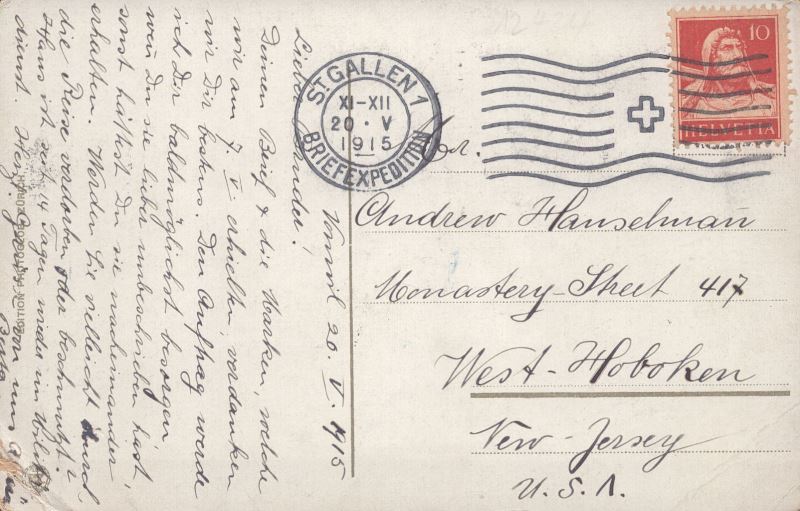 Vonwil 20. V. 1915
Lieber Andw!
Deinen Brief & die Marken, welche
wir am 7. V. erhielten, verdanken
wir Dir bestens. Den Auftrag werde
ich Dir baldmöglichst besorgen
wen Du sie lieber unbeschrieben hast
sonst hättest Du sie nacheinander
erhalten. Werden Sie vielleicht durch
die Reise verdorben oder beschmutzt?
Hans ist seit 14 Tagen wieder im Militär
dienst. Herzl. von uns
Berta
ST. GALLEN 1
XI-XII
20. V
1915
BRIEFEXPEDITION
10
HELVETIA
Andrew Hanselmann
Monastery-Street 417
West-Hoboken
New-Jersey
U. S. A.